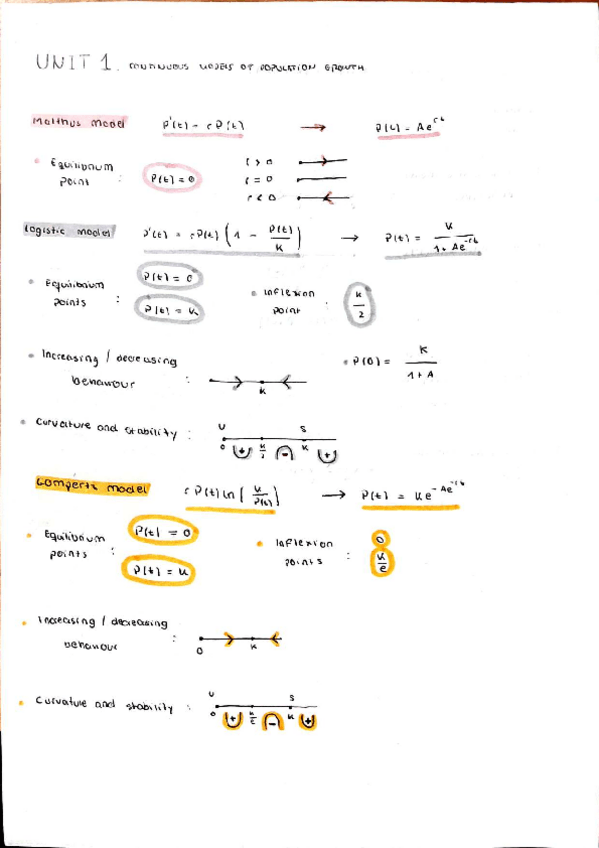 UNIT 1. CONTINUOUS MODELS OF POPULATION GROWTH
Malthus model P'(t) = rP(t) → P(t) = Ae^rt
• Equilibrium point : P(t) = 0
r > 0
r = 0
r < 0
Logistic model P'(t) = rP(t) (1 - P(t)/K) → P(t) = K/(1 + Ae^-rt)
• Equilibrium points : P(t) = 0
P(t) = K
• Inflexion point : K/2
• Increasing / decreasing behaviour : K
• P(0) = K/(1 + A)
• Curvature and stability : U S
0 K/2 K
+ - +
Gompertz model rP(t) ln(K/P(t)) → P(t) = Ke^-Ae^-rt
• Equilibrium points : P(t) = 0
P(t) = K
• Inflexion points : 0
K/e
• Increasing / decreasing behaviour : 0 K
• Curvature and stability : U S
0 K/e K
+ - +